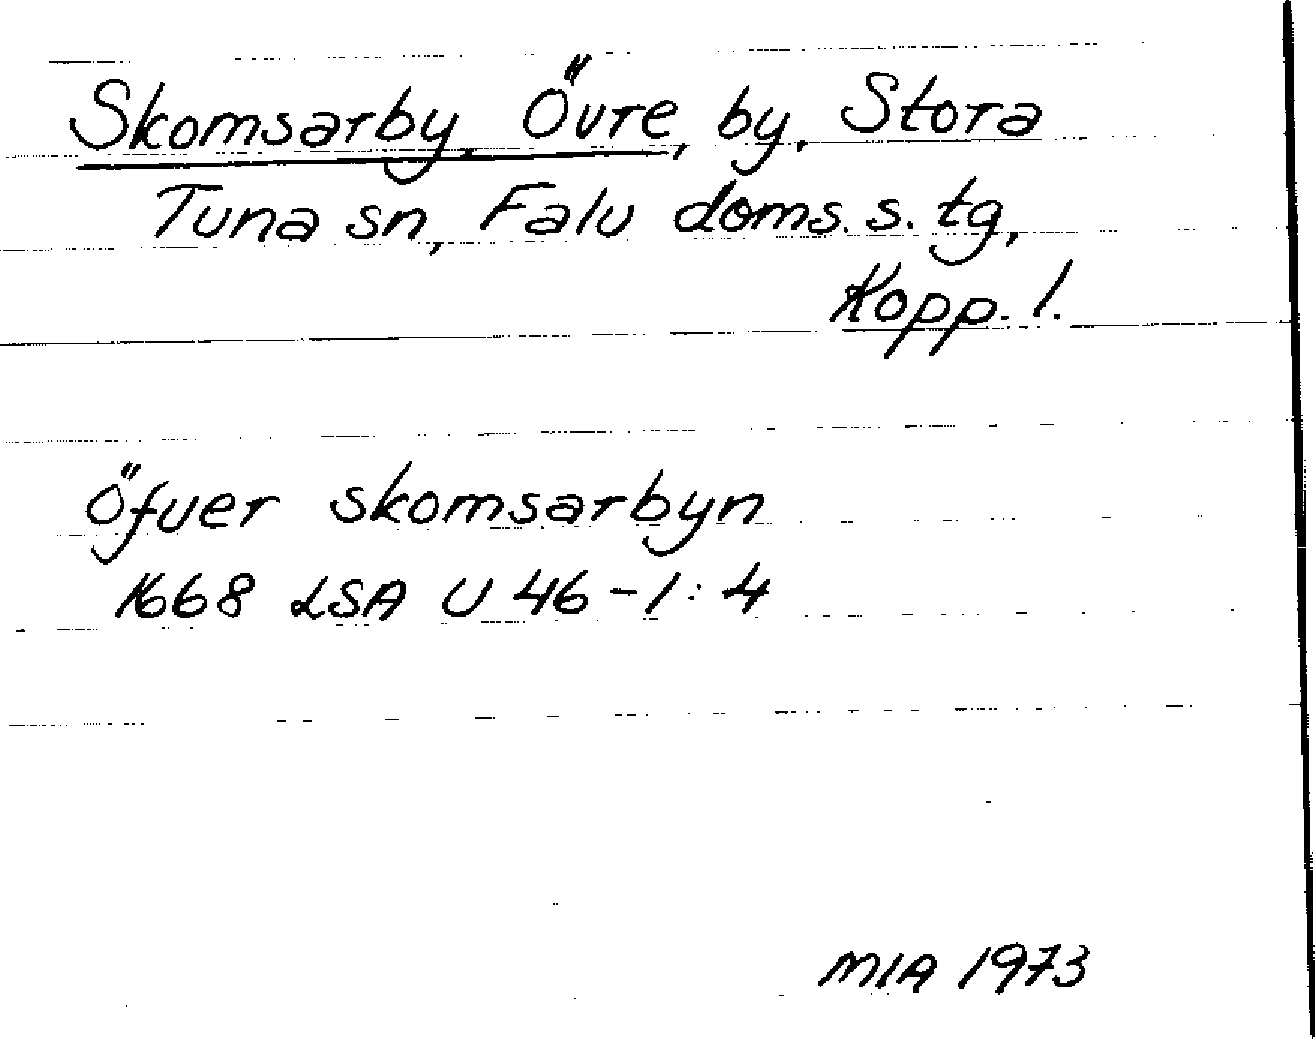 Skomsarby, Övre, by, Stora
Tuna sn, Falu doms. s. tg,
Kopp. l.
öfuer skomsarbyn
1668 LSA U 46-1:4
MIA 1973